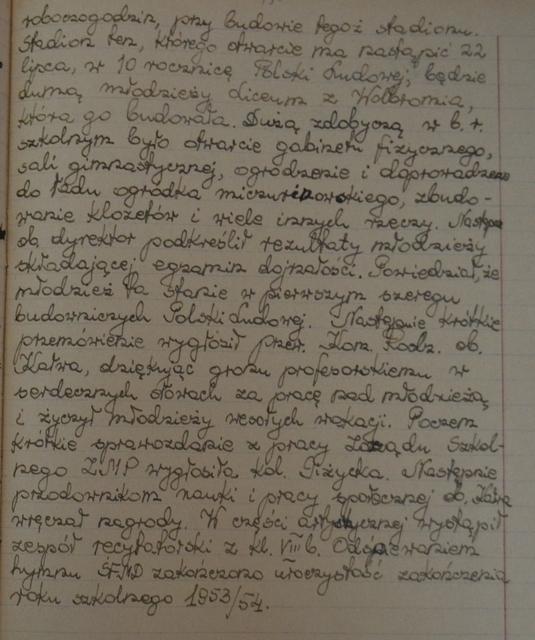 roboczogodzin, przy budowie tegoż stadionu.
Stadion ten, którego otwarcie ma nastąpić 22
lipca, w 10 rocznicę Polski Ludowej, będzie
dumą młodzieży Liceum z Wolbromia,
która go budowała. Dużą zdobyczą w b. r.
szkolnym było otwarcie gabinetu fizycznego,
sali gimnastycznej, ogrodzenie i doprowadzenie
do ładu ogródka miczurinowskiego, zbudo-
wanie klozetów i wiele innych rzeczy. Następnie
ob. dyrektor podkreślił rezultaty młodzieży
składającej egzamin dojrzałości. Powiedział, że
młodzież ta stanie w pierwszym szeregu
budowniczych Polski Ludowej. Następnie krótkie
przemówienie wygłosił przew. Kom. Rodz. ob.
Kałwa, dziękując gronu profesorskiemu w
serdecznych słowach za pracę nad młodzieżą,
i życzył młodzieży wesołych wakacji. Poczem
krótkie sprawozdanie z pracy Zarządu Szkol-
nego ZMP wygłosiła kol. Giżycka. Następnie
przodownikom nauki i pracy społecznej ob. Kałwa
wręczał nagrody. W części artystycznej wystąpił
zespół recytatorski z kl. VIII b. Odśpiewaniem
hymnu ŚFMD zakończono uroczystość zakończenia
roku szkolnego 1953/54.